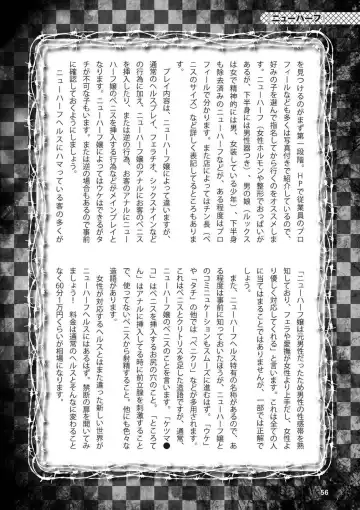 ニューハーフ
を見つけるのがまず第一段階。HPで従業員のプロ
フィールなども多くは写真付きで紹介しているので、
好みの子を選んで指名してから行くのをオススメしま
す。ニューハーフ(女性ホルモンや整形でおっぱいが
あるが、下半身には男性器つき)、男の娘(ルックス
は女で精神的には男。女装している少年)、下半身
も除去済みのニューハーフなどが、ある程度はプロ
フィールで分かります。また店によってはチン長(ペ
ニスのサイズ)など詳しく表記してるところもありま
す。
プレイ内容は、ニューハーフ嬢によって違いますが、
通常のヘルスプレイ、フェラチオ、シックスナインなど
の行為に加え、ニューハーフ嬢のアナルにお客のペニス
を挿入したり、または逆の行為、お客のアナルにニュー
ハーフ嬢のペニスを挿入する行為などがメインプレイと
なります。ニューハーフ嬢によってはウケはできるがタ
チが不可な子もいます。または逆の場合もあるので事前
に確認しておくようにしましょう。
ニューハーフヘルスにハマっている客の多くが
「ニューハーフ嬢は元男性だったため男性の性感帯を熟
知しており、フェラや愛撫が女性より上手だし、女性よ
り優しく対応してくれる」と言います。これは全ての人
に当てはまることではありませんが、一部では正解で
しょう。
また、ニューハーフヘルス特有の名称があるので、あ
る程度は事前に知っておいたほうが、ニューハーフ嬢と
のコミュニケーションもスムーズに進むはず。「ウケ」
や「タチ」の他では「ペニクリ」などが多用されます。
これはペニスとクリトリスを足した造語ですが、通常、
ニューハーフ嬢のペニスのことを言います。「ケツマ●
コ」はペニスを挿入するお尻の穴のこと。「ところて
ん」はアナルに挿入してる時に前立腺を刺激すること
で、使ってないペニスから射精すること。他にも色々な
造語があります。
女性が対応するヘルスとはまた違った新しい世界が
ニューハーフヘルスにはあるはず。禁断の扉を開いてみ
ますか?料金は通常のヘルスとそんなに変わること
なく60分1万円くらいが相場になります。
56